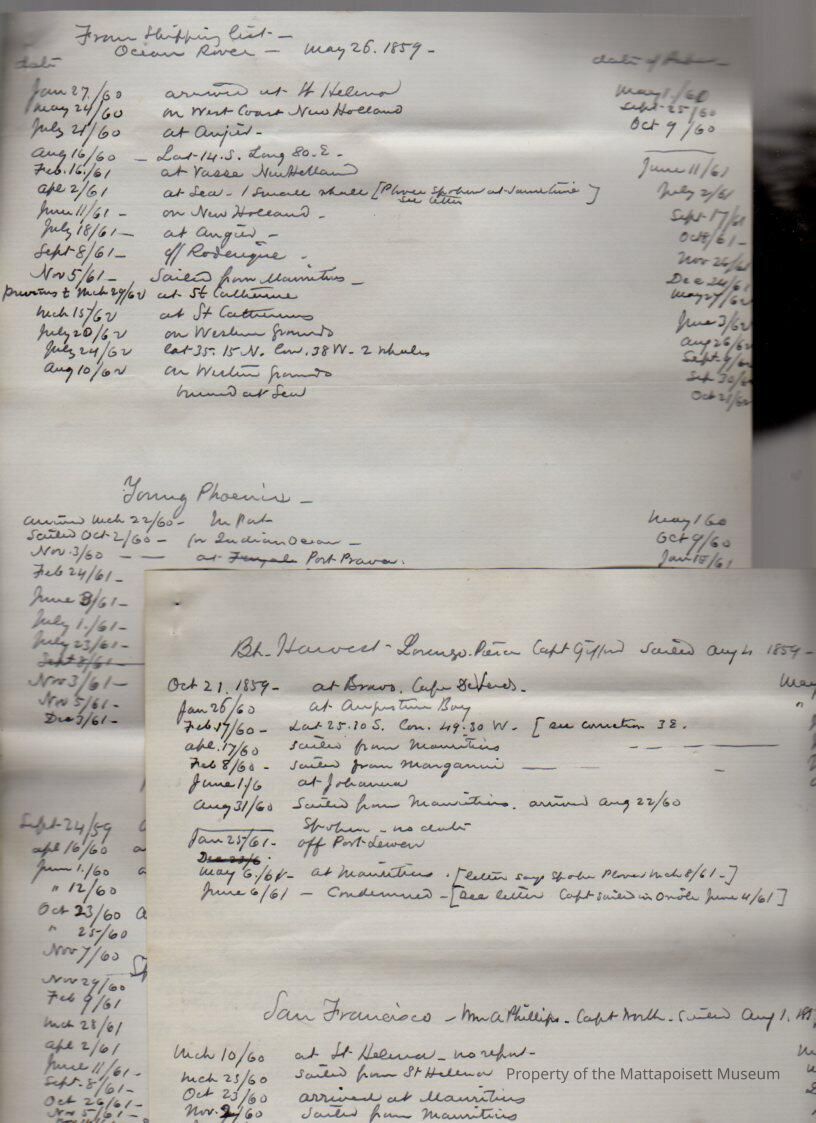 From Shipping List -
Ocean Rover - May 26. 1859 -
date date of
Jan 27/60 arrived at St Helena May 1/60
May 24/60 on West Coast New Holland Sept 25/60
July 21/60 at Anjier - Oct 9/60
Aug 16/60 - Lat 14. S. Long 80. E -
Feb. 16/61 at Vasse New Holland June 11/61
Apl 2/61 at Sea - 1 small whale [Plover spoken at same time] July 2/61
see letter
June 11/61 - on New Holland - Sept 17/61
July 18/61 - at Angier - Oct 8/61 -
Sept 8/61 - off Roderique - Nov 26/61
Nov 5/61 - Sailed from Mauritius - Dec 24/61
previous to Mch 29/62 at St Catherine May 27/62
Mch 15/62 at St Catherines June 3/62
July 20/62 on Western Grounds Aug 26/62
July 24/62 Lat 35. 15 N. Lon. 38 W - 2 whales Sept 9/62
Aug 10/62 on Western Grounds Sept 30/62
burned at Sea Oct 21/62
Young Phoenix -
arrived Mch 22/60 - In Port May 1 60
Sailed Oct 2/60 - for Indian Ocean - Oct 9/60
Nov 3/60 - - at Port Praya. Jan 15/61
Feb 24/61 -
June 3/61 -
July 1/61 -
July 23/61 -
Sept 8/61 -
Nov 3/61 -
Nov 5/61 -
Dec 3/61 -
Bk. Harvest - Lorenzo Peirce Capt Gifford Sailed Aug 4 1859 -
Oct 21. 1859 - at Bravo. Cape DeVerds. May
Jan 26/60 at Augustine Bay "
Feb 17/60 - Lat 25.30 S. Lon. 49.30 W - [see correction 38.
Apl. 17/60 sailed from Mauritius
Feb 8/60 - sailed from
June 1/6 at Johanna
Aug 31/60 Sailed from Mauritius. arrived Aug 22/60
Spoken - no date
Jan 25/61 - off Port
May 6/61 - at Mauritius. [letter says spoke Plover Mch 8/61 -]
June 6/61 - Condemned - [see letter Capt sailed in Oriole June 4/61]
Sept 24/59
Apl 16/60
June 1/60
" 12/60
Oct 23/60
" 25/60
Nov 7/60
Nov 29/60
Feb 9/61
Mch 28/61
Apl 2/61
June 11/61 -
Sept. 8/61 -
Oct 26/61 -
Nov 5/61 -
San Francisco - Wm A Phillips - Capt North - Sailed Aug 1.
Mch 10/60 at St Helena - no report -
Mch 23/60 sailed from St Helena
Oct 23/60 arrived at Mauritius
Nov. 2/60 sailed from Mauritius
Property of the Mattapoisett Museum